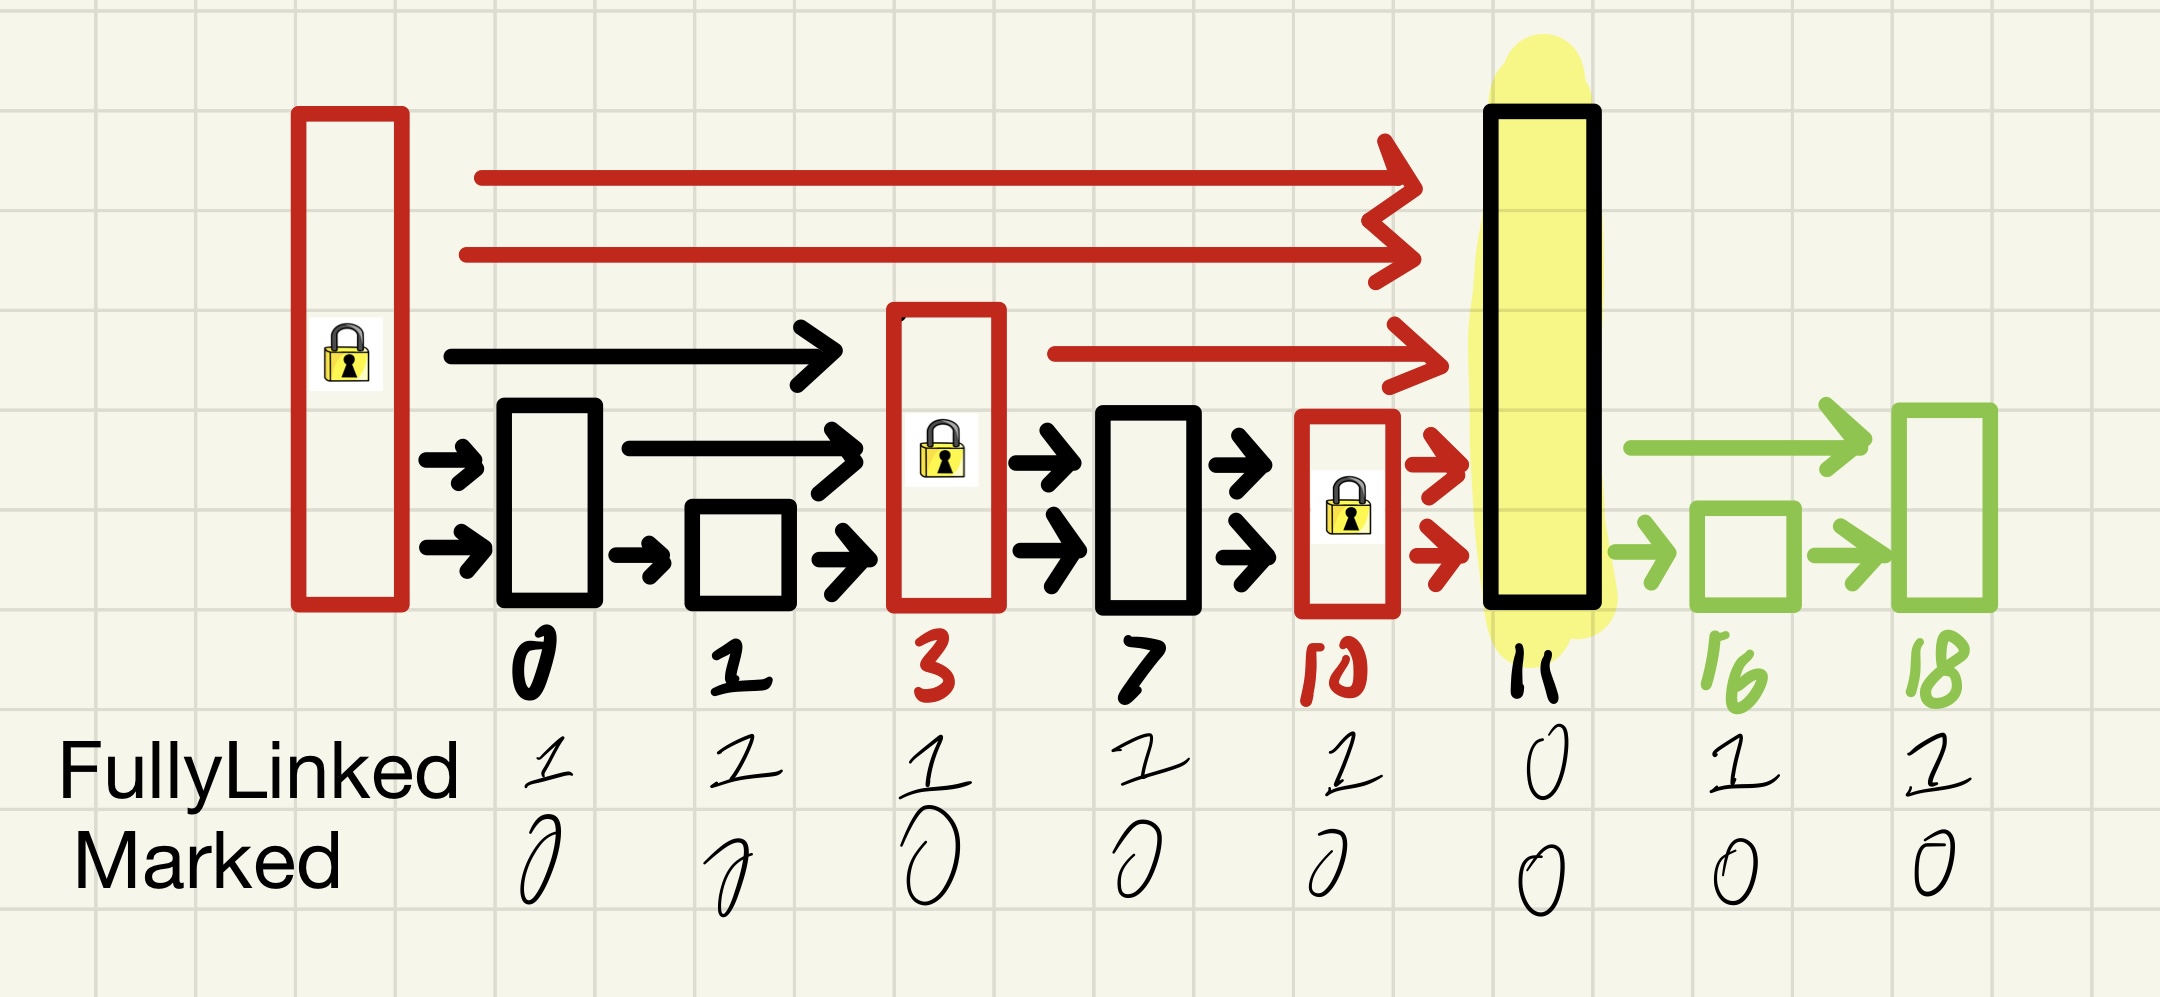 0 1 3 7 10 11 16 18
FullyLinked 1 1 1 1 1 0 1 1
Marked 0 0 0 0 0 0 0 0